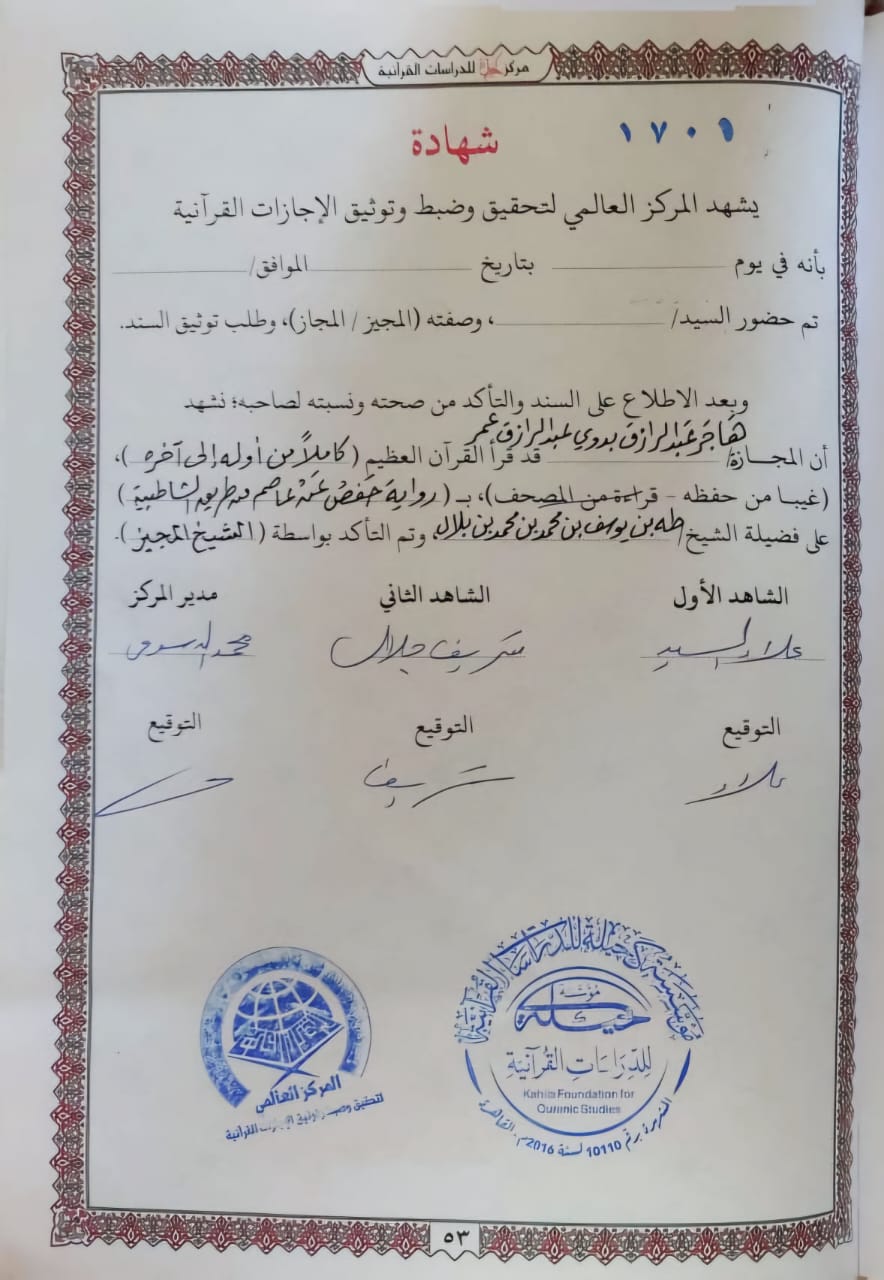 مركز كحيلة للدراسات القرآنية
١٧٠٩
شهادة
يشهد المركز العالمي لتحقيق وضبط وتوثيق الإجازات القرآنية
بأنه في يوم بتاريخ الموافق/
تم حضور السيد/ ، وصفته (المجيز / المجاز)، وطلب توثيق السند.
وبعد الاطلاع على السند والتأكد من صحته ونسبته لصاحبه؛ نشهد
هَاجَر عَبد الرازق بدوي عبد الرازق عمر
أن المجازة/ قد قرأ القرآن العظيم ( كاملاً من أوله إلى آخره )،
(غيبا من حفظه - قراءة من المصحف)، بـ ( رواية حفص عن عاصم من طريق الشاطبية )
على فضيلة الشيخ/ طه بن يوسف بن محمد بن محمد بن بلال، وتم التأكد بواسطة ( الشيخ المجيز ).
الشاهد الأول الشاهد الثاني مدير المركز
علاء السيد شريف جلال محمد الدسوقي
التوقيع التوقيع التوقيع
علاء شريف
مؤسسة كحيلة للدراسات القرآنية
مُؤسَّسَة
كحيلة
لِلدِّرَاسَاتِ القُرآنِيَّة
Kahila Foundation for
Quranic Studies
المشهرة برقم 10110 لسنة 2016م - القاهرة
المركز العالمي
لتحقيق وضبط وتوثيق الإجازات القرآنية
٥٣